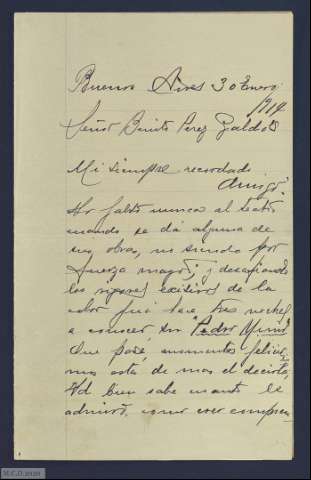 Buenos Aires 30 Enero
1914
Señor Benito Perez Galdós
Mi siempre recordado
Amigo.
No falto nunca al teatro
cuando se da alguna de
sus obras, no siendo por
fuerza mayor, y desafiando
los rigores de la
calor fui hace tres noches
a conocer su Pedro Minio
Que pasé momentos felices
mas está de mas el decirlo,
Vd bien sabe cuanto le
admiro, como creo